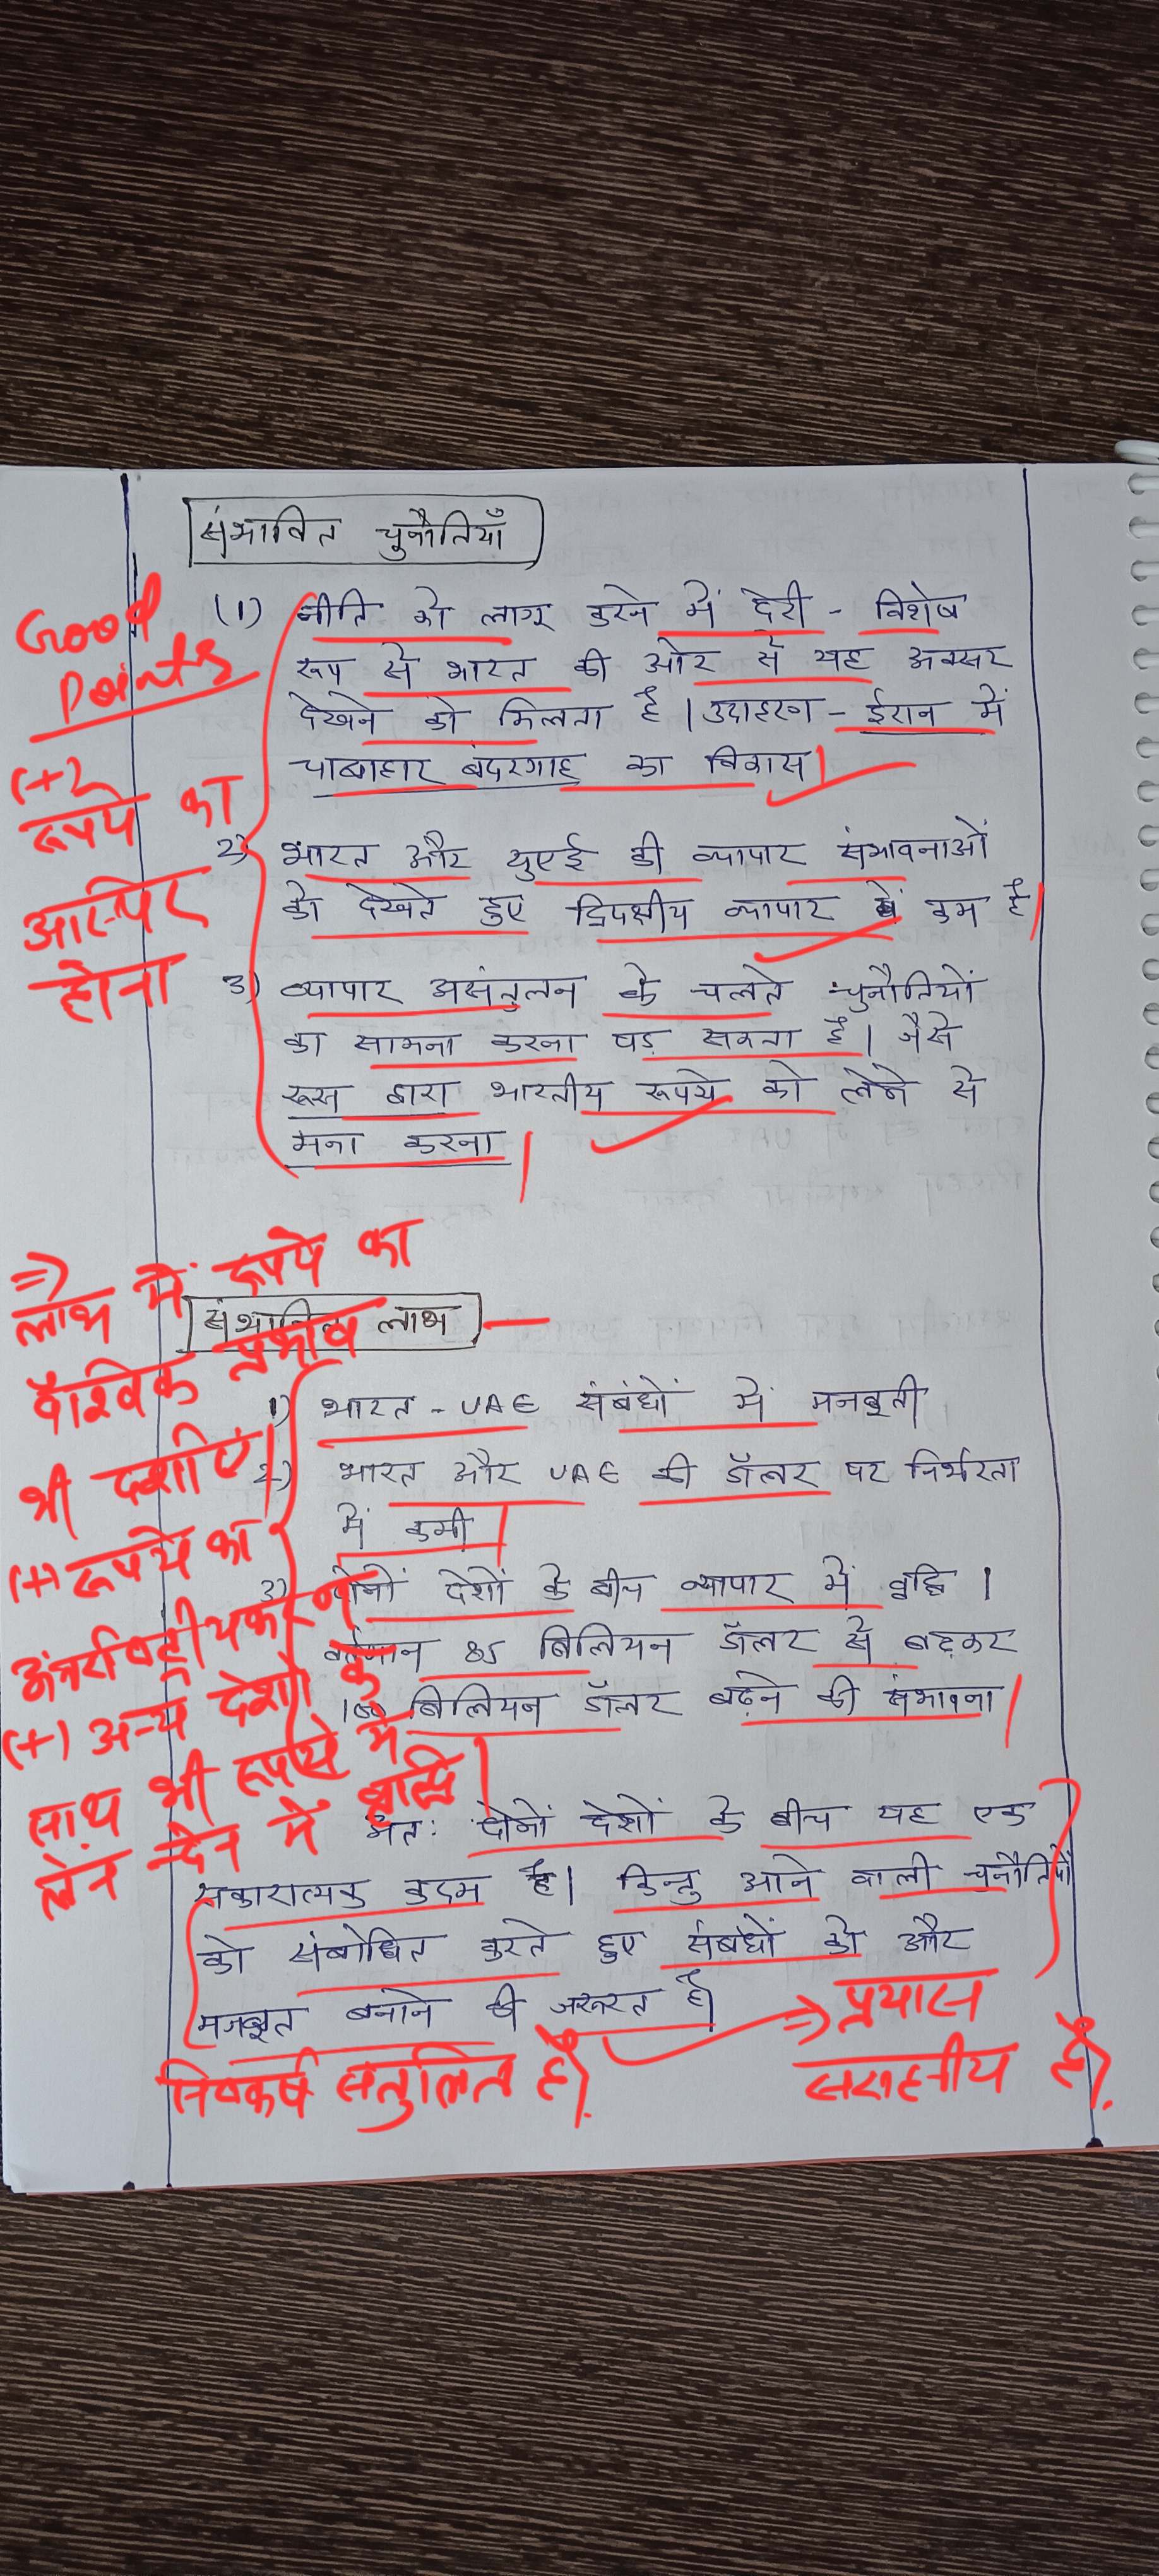 संभावित चुनौतियाँ
(1) नीति को लागू करने में देरी - विशेष
रूप से भारत की ओर से यह अक्सर
देखने को मिलता है। उदाहरण - ईरान में
चाबाहार बंदरगाह का विकास।
2) भारत और यूएई की व्यापार संभावनाओं
को देखते हुए द्विपक्षीय व्यापार कम है
3) व्यापार असंतुलन के चलते चुनौतियों
का सामना करना पड़ सकता है। जैसे
रूस द्वारा भारतीय रूपये को लेने से
मना करना
Good
Points
(+) रूपये का
अस्थिर
होना
संभावित लाभ
1) भारत - UAE संबंधों में मजबूती
2) भारत और UAE की डॉलर पर निर्भरता
में कमी
3) दोनों देशों के बीच व्यापार में वृद्धि ।
वर्तमान 85 बिलियन डॉलर से बढ़कर
100 बिलियन डॉलर बढ़ने की संभावना
=> लाभ में रूपये का
वैश्विक प्रभाव
भी दर्शाएं।
(+) रूपये का
अंतर्राष्ट्रीयकरण
(+) अन्य देशों के
साथ भी रूपये में
लेन-देन में वृद्धि।
अतः दोनों देशों के बीच यह एक
सकारात्मक कदम है। किन्तु आने वाली चुनौतियों
को संबोधित करते हुए संबंधों को और
मजबूत बनाने की जरूरत है।
=> प्रयास
सराहनीय है।
निष्कर्ष संतुलित है।